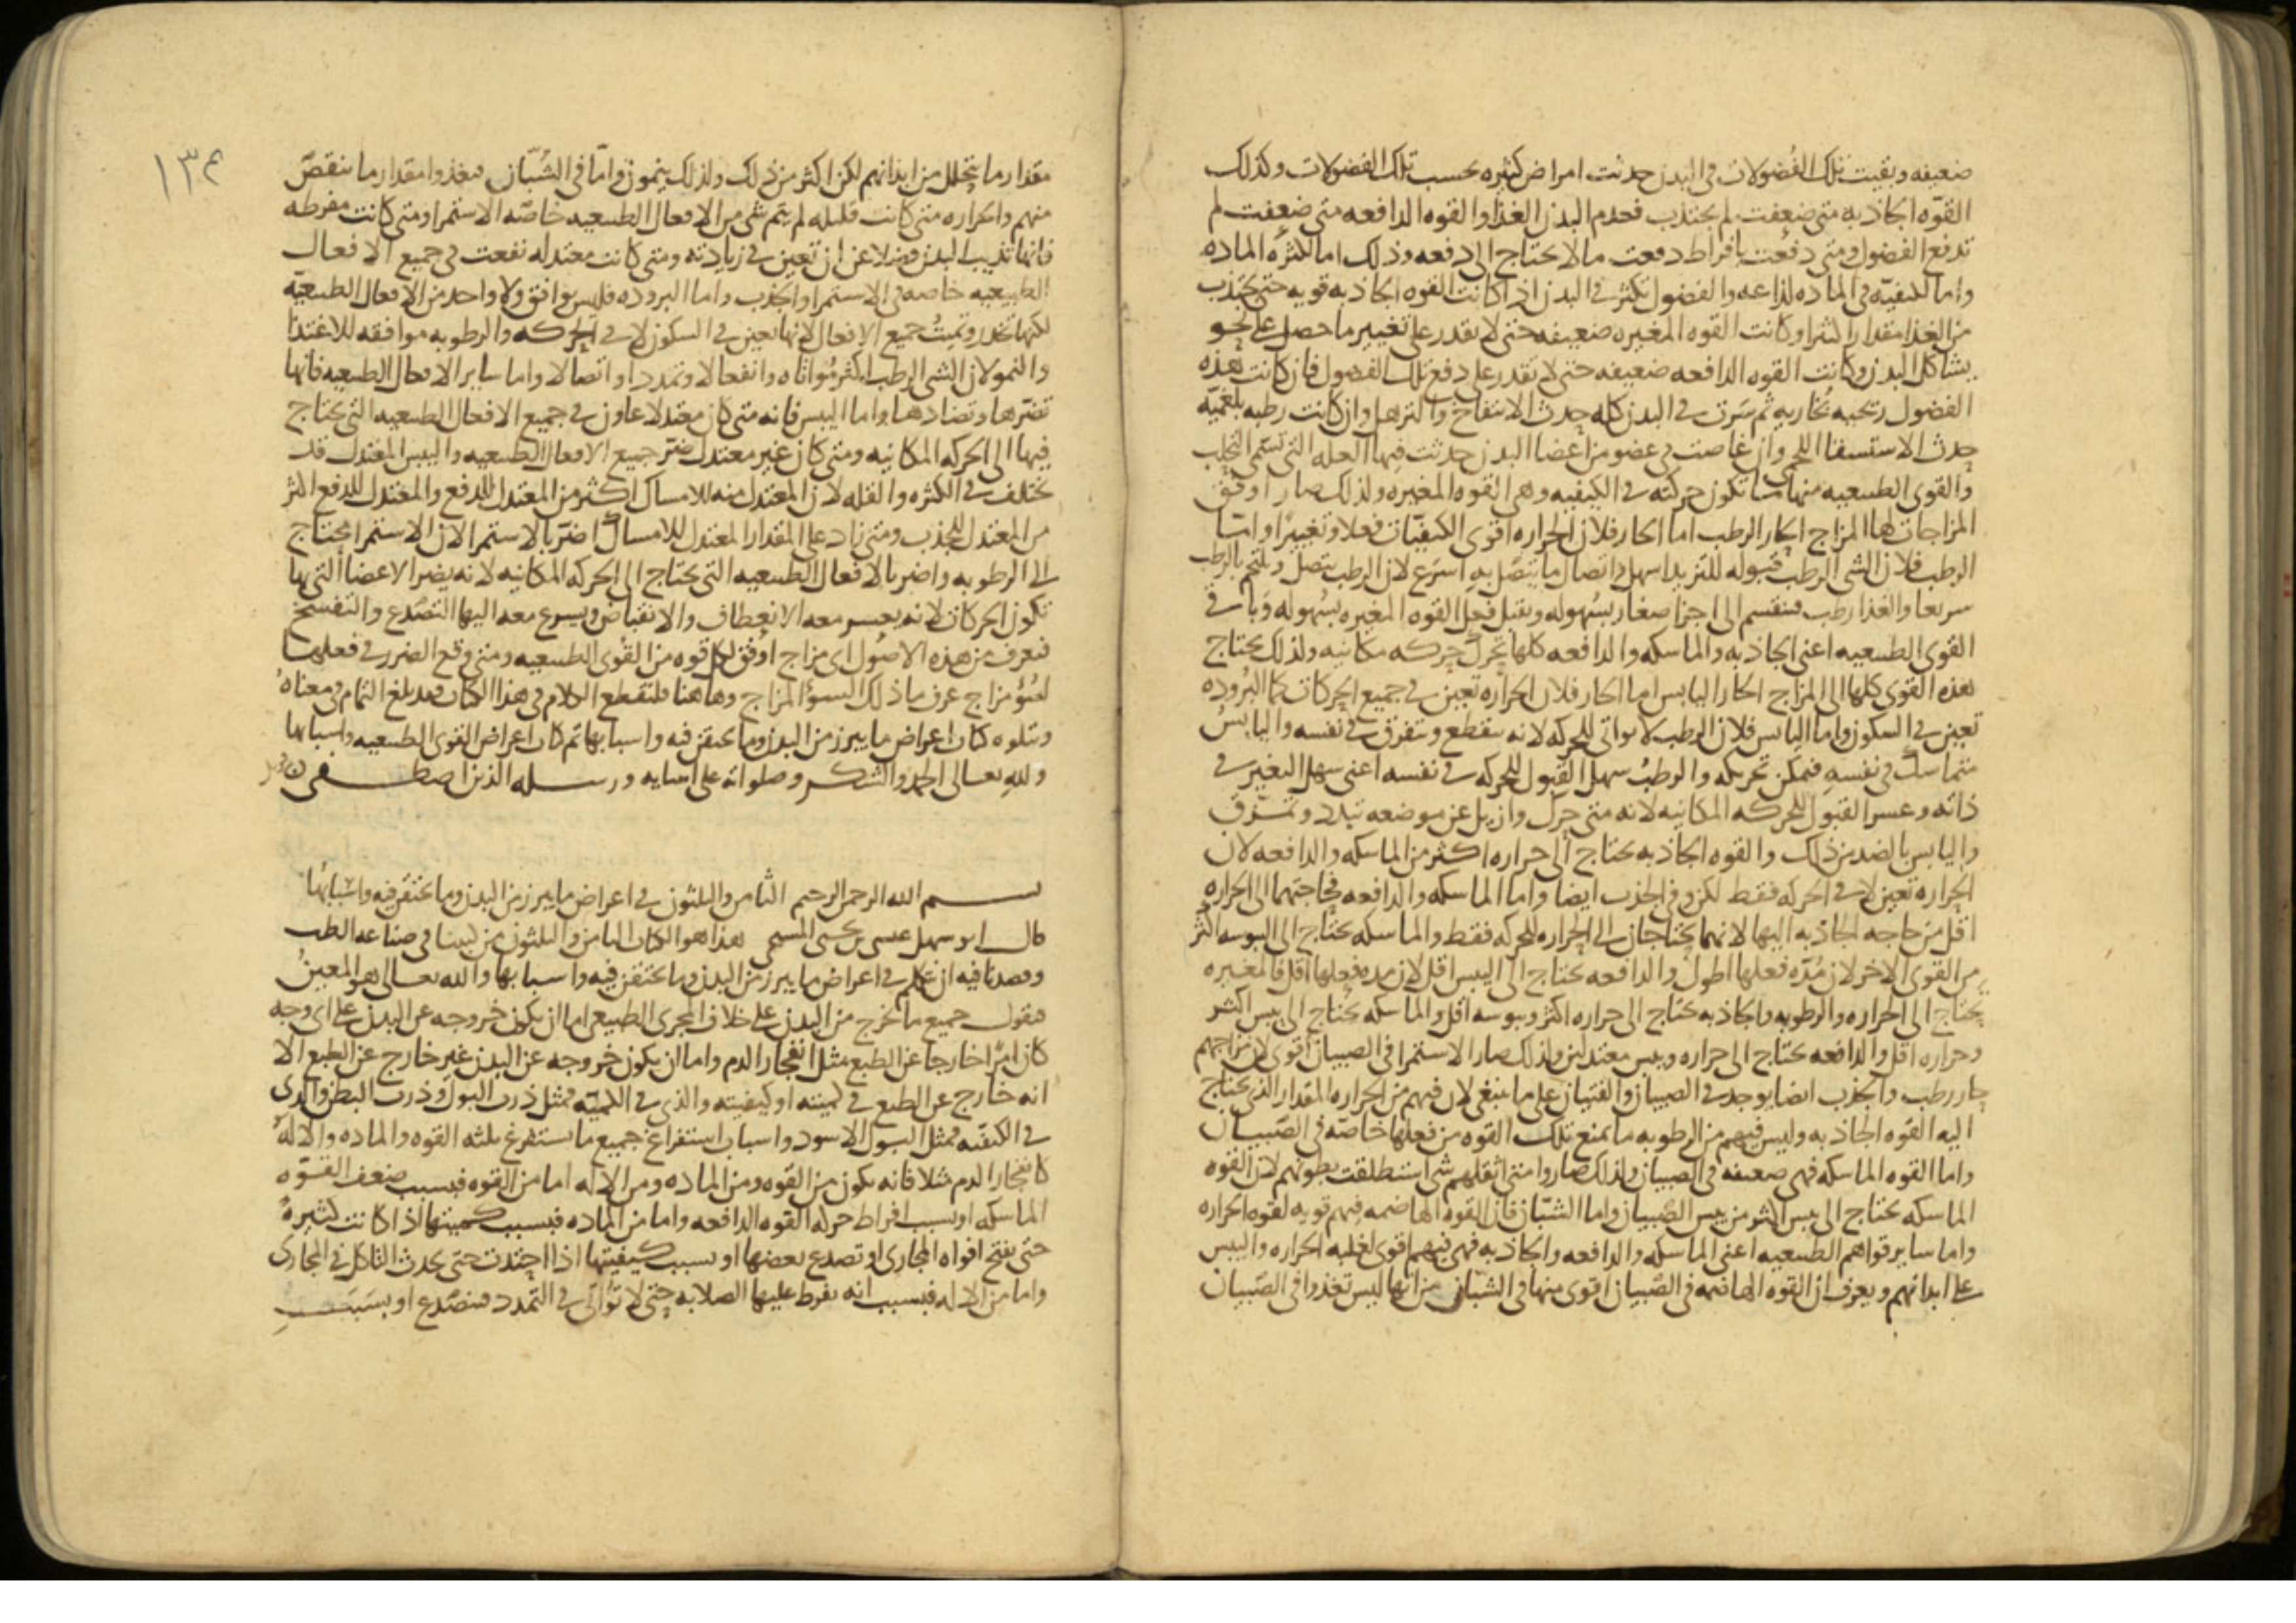 ضعيفه وبقيت تلك الفضولات فى البدن حدثت امراض كثيره بحسب تلك الفضولات وكذلك
القوه الجاذبه متى ضعفت لم يجتذب فعدم البدن الغذا والقوه الدافعه متى ضعفت لم
تدفع الفضول ومتى دفعت بافراط دفعت ما لا يحتاج الى دفعه وذلك اما لكثره الماده
واما لكيفيه فى الماده لذاعه والفضول تكثر فى البدن اذا كانت القوه الجاذبه قويه حتى تجتذب
من الغذا مقدارا كثيرا وكانت القوه المغيره ضعيفه حتى لا يقدر على تغيير ما حصل على نحو
يشاكل البدن وكانت القوه الدافعه ضعيفه حتى لا تقدر على دفع تلك الفضول فان كانت هذه
الفضول ريحيه بخاريه ثم سرت فى البدن كله حدث الانتفاخ والترهل وان كانت رطبه بلغميه
حدث الاستسقا اللحمى وان غاصت فى عضو من اعضا البدن حدثت فيها العله التى تسمى
والقوى الطبيعيه منها ما تكون حركته فى الكيفيه وهى القوه المغيره ولذلك صار اوفق
المزاجات لها المزاج الحار الرطب اما الحار فلان الحراره اقوى الكيفيات فعلا وتغييرا واما
الرطب فلان الشى الرطب قبوله للتزيد اسهل واتصال ما يتصل به اسرع لان الرطب يتصل ويلتحم بالرطب
سريعا والغذا رطب فينقسم الى اجزا صغار بسهوله ويقبل فعل القوه المغيره بسهوله وباقى
القوى الطبيعيه اعنى الجاذبه والماسكه والدافعه كلها تحرك حركه مكانيه ولذلك يحتاج
هذه القوى كلها الى المزاج الحار اليابس اما الحار فلان الحراره تعين فى جميع الحركات كما البروده
تعين فى السكون واما اليابس فلان الرطب لا يواتى للحركه لانه ينقطع ويتفرق فى نفسه واليابس
متماسك فى نفسه فيمكن تحريكه والرطب سهل القبول للحركه فى نفسه اعنى سهل التغير فى
ذاته وعسر القبول للحركه المكانيه لانه متى حرك وازيل عن موضعه تبدد وتفرق
واليابس بالضد من ذلك والقوه الجاذبه يحتاج الى حراره اكثر من الماسكه والدافعه لان
الحراره تعين لا فى الحركه فقط لكن وفى الجذب ايضا واما الماسكه والدافعه فحاجتهما الى الحراره
اقل من حاجه الجاذبه اليها لانهما يحتاجان الى الحراره للحركه فقط والماسكه يحتاج الى اليبوسه اكثر
من القوى الاخر لان مده فعلها اطول والدافعه يحتاج الى اليبس اقل لان مده فعلها اقل فالمغيره
يحتاج الى الحراره والرطوبه والجاذبه يحتاج الى حراره اكثر ويبوسه اقل والماسكه يحتاج الى يبس اكثر
وحراره اقل والدافعه يحتاج الى حراره ويبس معتدلين ولذلك صار الاستمرا فى الصبيان اقوى لان مزاجهم
حار رطب والجذب ايضا يوجد فى الصبيان والفتيان على ما ينبغى لان فيهم من الحراره المقدار الذى يحتاج
اليه القوه الجاذبه وليس فيهم من الرطوبه ما يمنع تلك القوه من فعلها خاصه فى الصبيان
واما القوه الماسكه فهى ضعيفه فى الصبيان ولذلك صاروا متى اثقلهم شى استطلقت بطونهم لان القوه
الماسكه يحتاج الى يبس اكثر من يبس الصبيان واما الشبان فان القوه الهاضمه فيهم قويه لقوه الحراره
واما ساير قواهم الطبيعيه اعنى الماسكه والدافعه والجاذبه فهى فيهم اقوى لغلبه الحراره واليبس
على ابدانهم ويعرف ان القوه الهاضمه فى الصبيان اقوى منها فى الشبان من انها ليس تغذوا فى الصبيان
١٣٤
مقدار ما يتحلل من ابدانهم لكن اكثر من ذلك ولذلك ينمون واما فى الشبان فيغذوا مقدار ما ينقص
منهم والحراره متى كانت قليله لم يتم شى من الافعال الطبيعيه خاصه الاستمرا ومتى كانت مفرطه
فانها تذيب البدن فضلا عن ان تعين فى زيادته ومتى كانت معتدله نفعت فى جميع الافعال
الطبيعيه خاصه فى الاستمرا والجذب واما البروده فليس يوافق ولا واحد من الافعال الطبيعيه
لكنها تخدر وتميت جميع الافعال لانها تعين فى السكون لا فى الحركه والرطوبه موافقه للاغتذا
والنمو لان الشى الرطب اكثر مواتاه وانفعالا وتمددا واتصالا واما ساير الافعال الطبيعيه فانها
تضرها وتضادها واما اليبس فانه متى كان معتدلا عاون فى جميع الافعال الطبيعيه التى يحتاج
فيها الى الحركه المكانيه ومتى كان غير معتدل ضر جميع الافعال الطبيعيه واليبس المعتدل قد
يختلف فى الكثره والقله لان المعتدل منه للامساك اكثر من المعتدل للدفع والمعتدل للدفع اكثر
من المعتدل للجذب ومتى زاد على المقدار المعتدل للامساك اضر بالاستمرا لان الاستمرا يحتاج
الى الرطوبه واضر بالافعال الطبيعيه التى يحتاج الى الحركه المكانيه لانه يضر الاعضا التى بها
تكون الحركات لانه يعسر معه الانعطاف والانقباض ويسرع معه اليها التصدع والتفسخ
فيعرف من هذه الاصول اى مزاج اوفق لكل قوه من القوى الطبيعيه ومتى وقع الضرر فى فعلها
لسؤ مزاج عرف ما ذلك السؤ المزاج وهاهنا فلنقطع الكلام فى هذا الكتاب فقد بلغ التمام فى معناه
ويتلوه كتاب اعراض ما يبرز من البدن وما يحتقن فيه واسبابها تم كتاب اعراض القوى الطبيعيه واسبابها
ولله تعالى الحمد والشكر وصلواته على انبيايه ورسله الذين اصطفى
بسم الله الرحمن الرحيم الثامن والثلثون فى اعراض ما يبرز من البدن وما يحتقن فيه واسبابها
قال ابو سهل عيسى بن يحيى المسيحى هذا هو الكتاب الثامن والثلثون من كتبنا فى صناعه الطب
وقصدنا فيه ان نتكلم فى اعراض ما يبرز من البدن وما يحتقن فيه واسبابها والله تعالى هو المعين
فنقول جميع ما يخرج من البدن على خلاف المجرى الطبيعى اما ان يكون خروجه عن البدن على اى وجه
كان امرا خارجا عن الطبع مثل انفجار الدم واما ان يكون خروجه عن البدن غير خارج عن الطبع الا
انه خارج عن الطبع فى كميته او كيفيته والذى فى الكميه فمثل ذرب البول وذرب البطن والذى
فى الكيفيه فمثل البول الاسود واسباب استفراغ جميع ما يستفرغ ثلثه القوه والماده والاله
كانفجار الدم مثلا فانه يكون من القوه ومن الماده ومن الاله اما من القوه فبسبب ضعف القوه
الماسكه او بسبب افراط حركه القوه الدافعه واما من الماده فبسبب كميتها اذا كانت كثيره
حتى يفتح افواه المجارى او تصدع بعضها او بسبب كيفيتها اذا احتدت حتى يحدث التاكل فى المجارى
واما من الاله فبسبب انه يفرط عليها الصلابه حتى لا تواتى فى التمدد فيتصدع او بسبب